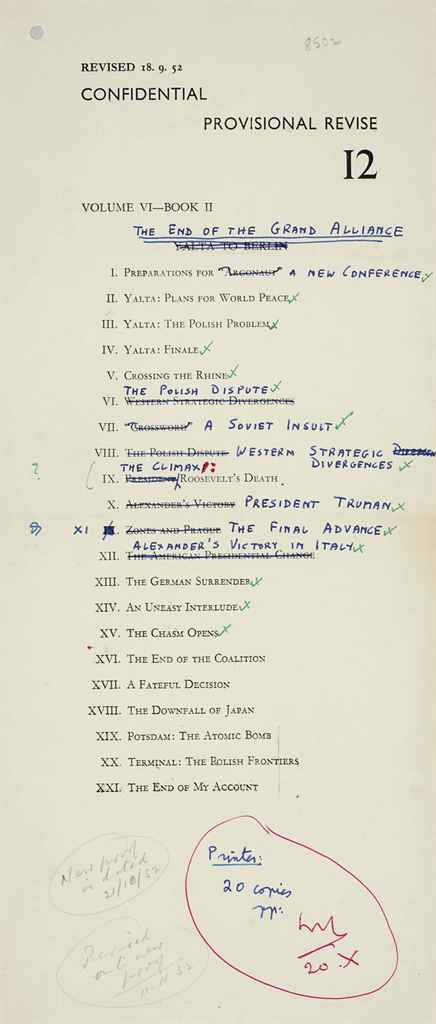 8502
REVISED 18. 9. 52
CONFIDENTIAL
PROVISIONAL REVISE
12
VOLUME VI—BOOK II
THE END OF THE GRAND ALLIANCE
YALTA TO BERLIN
I. Preparations for "Argonaut" A NEW CONFERENCE
II. Yalta: Plans for World Peace
III. Yalta: The Polish Problem
IV. Yalta: Finale
V. Crossing the Rhine
THE POLISH DISPUTE
VI. Western Strategic Divergences
VII. "Crossword" A SOVIET INSULT
VIII. The Polish Dispute WESTERN STRATEGIC
THE CLIMAX: DIVERGENCES
? IX. President Roosevelt's Death
X. Alexander's Victory PRESIDENT TRUMAN
XI Zones and Prague THE FINAL ADVANCE
ALEXANDER'S VICTORY IN ITALY
XII. The American Presidential Change
XIII. The German Surrender
XIV. An Uneasy Interlude
XV. The Chasm Opens
XVI. The End of the Coalition
XVII. A Fateful Decision
XVIII. The Downfall of Japan
XIX. Potsdam: The Atomic Bomb
XX. Terminal: The Polish Frontiers
XXI. The End of My Account
Printer:
20 copies
pp:
20. X
New proof
is dated
21/10/52
Revised
new
proof
11.11.52